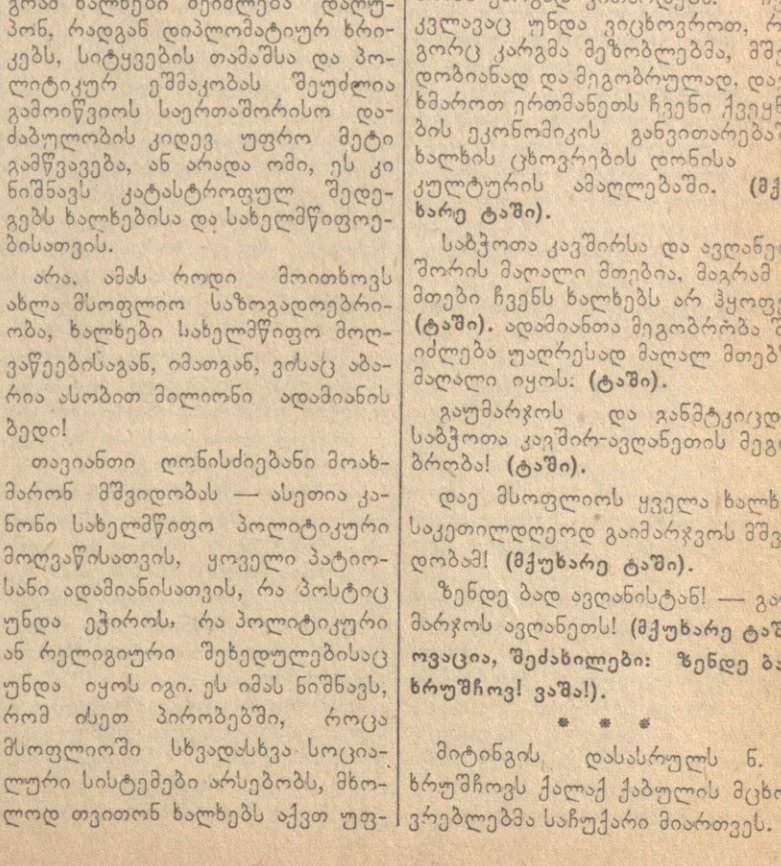 გრამ ხალხები შეიძლება დაღუ-
პონ, რადგან დიპლომატიურ ხრი-
კებს, სიტყვების თამაშსა და პო-
ლიტიკურ ეშმაკობას შეუძლია
გამოიწვიოს საერთაშორისო და-
ძაბულობის კიდევ უფრო მეტი
გამწვავება, ან არადა ომი, ეს კი
ნიშნავს კატასტროფულ შედე-
გებს ხალხებისა და სახელმწიფოე-
ბისათვის.
არა, ამას როდი მოითხოვს
ახლა მსოფლიო საზოგადოებრი-
ობა, ხალხები სახელმწიფო მოღ-
ვაწეებისაგან, იმათგან, ვისაც აბა-
რია ასობით მილიონი ადამიანის
ბედი!
თავიანთი ღონისძიებანი მოახ-
მარონ მშვიდობას — ასეთია კა-
ნონი სახელმწიფო პოლიტიკური
მოღვაწისათვის, ყოველი პატიო-
სანი ადამიანისათვის, რა პოსტიც
უნდა ეჭიროს, რა პოლიტიკური
ან რელიგიური შეხედულებისაც
უნდა იყოს იგი. ეს იმას ნიშნავს,
რომ ისეთ პირობებში, როცა
მსოფლიოში სხვადასხვა სოცია-
ლური სისტემები არსებობს, მხო-
ლოდ თვითონ ხალხებს აქვთ უფ-
კვლავაც უნდა ვიცხოვროთ, რ
გორც კარგმა მეზობლებმა, მშ
დობიანად და მეგობრულად, და
ხმაროთ ერთმანეთს ჩვენი ქვეყნ
ბის ეკონომიკის განვითარება
ხალხის ცხოვრების დონისა
კულტურის ამაღლებაში. (მქ
ხარე ტაში).
საბჭოთა კავშირსა და ავღანე
შორის მაღალი მთებია, მაგრამ
მთები ჩვენს ხალხებს არ ჰყოფ
(ტაში). ადამიანთა მეგობრობა შ
იძლება უაღრესად მაღალ მთებ
მაღალი იყოს: (ტაში).
გაუმარჯოს და განმტკიცდ
საბჭოთა კავშირ-ავღანეთის მეგ
ბრობა! (ტაში).
დაე მსოფლიოს ყველა ხალხ
საკეთილდღეოდ გაიმარჯვოს მშვ
დობამ! (მქუხარე ტაში).
ზენდე ბად ავღანისტან! — გა
მარჯოს ავღანეთს! (მქუხარე ტაშ
ოვაცია, შეძახილები: ზენდე ბა
ხრუშჩოვ! ვაშა!).
* * *
მიტინგის დასასრულს ნ.
ხრუშჩოვს ქალაქ ქაბულის მცხო
ვრებლებმა საჩუქარი მიართვეს.